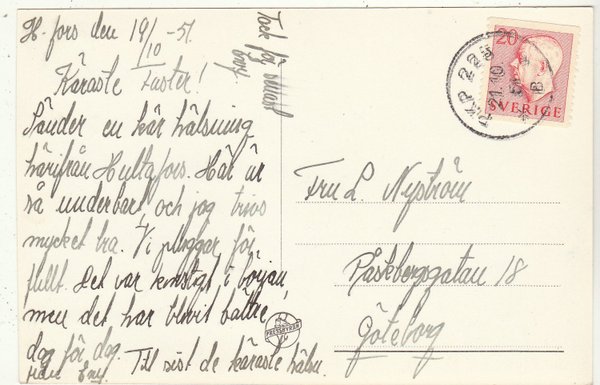 H. fors den 19/10 -51.
Käraste Faster!
Sänder en kär hälsning
härifrån Hultafors. Här är
så underbart, och jag trivs
mycket bra. Vi pluggar för
fullt. Det var konstigt i början,
men det har blivit bättre
dag för dag. Till sist de käraste häls.
från Eny.
Tack för
Eny.
PKP 228
21.10
20
SVERIGE
Fru L. Nyström
Påskbergsgatan 18
Göteborg